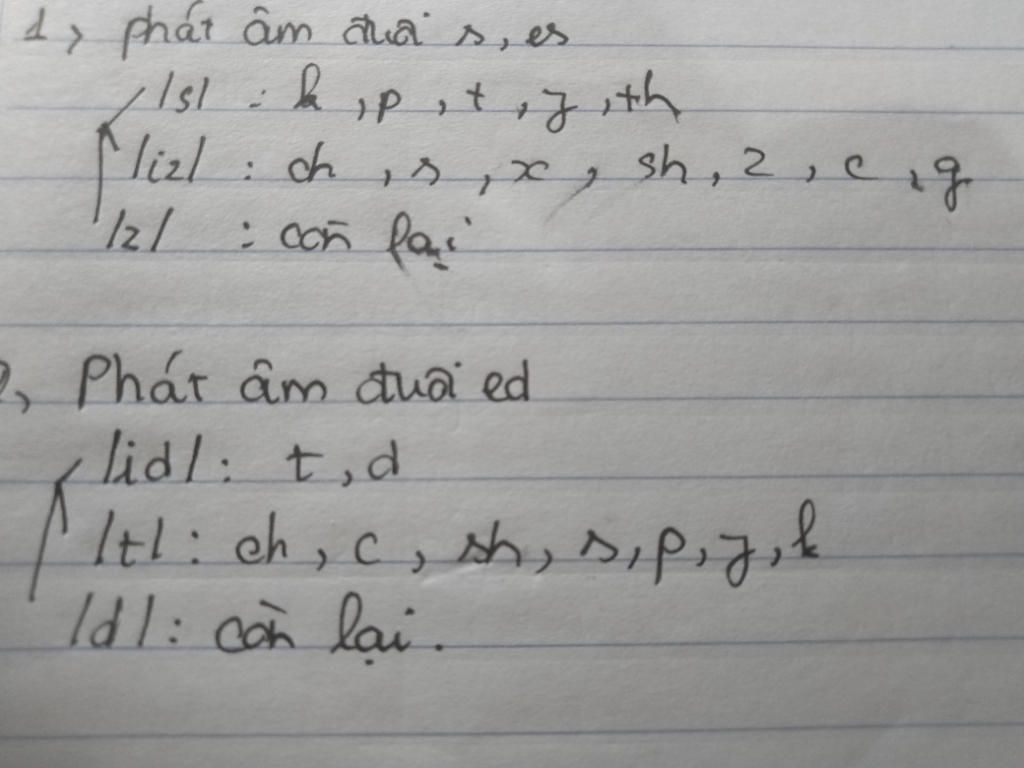 1, phát âm đuôi s, es
/s/ : k, p, t, f, th
/iz/ : ch, s, x, sh, z, c, g
/z/ : còn lại
2, Phát âm đuôi ed
/id/: t, d
/t/: ch, c, sh, s, p, f, k
/d/: còn lại.